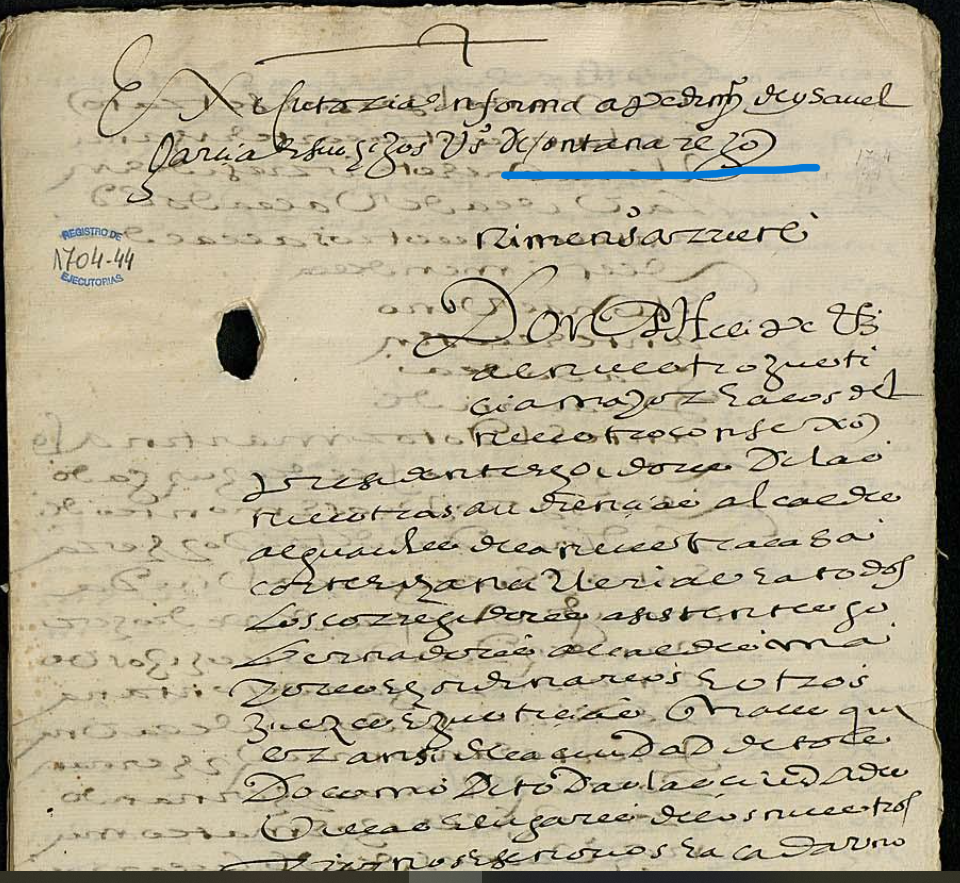 Executoria en forma a pedimiº de ysavel
garcia E sus hijos vºs de fontanarejo
REGISTRO DE
1704-44
EJECUTORIAS
Ximenº arzeveº
Don Phelipe &
al nuestro justi
cia mayor E a los del
nuestro consejo
presidente E oidores de las
nuestras audiencias alcaldes
alguaziles de la nuestra casa
corte E chancilleria E a todos
los corregidores asistente go
bernadores alcaldes ma
yores E ordinarios E otros
juezes E justicias qual qui
er ansi de la ciudad de tole
do como de todas las ciudades
villas E lugares de los nuestros
Reynos E señorios E a cada uno